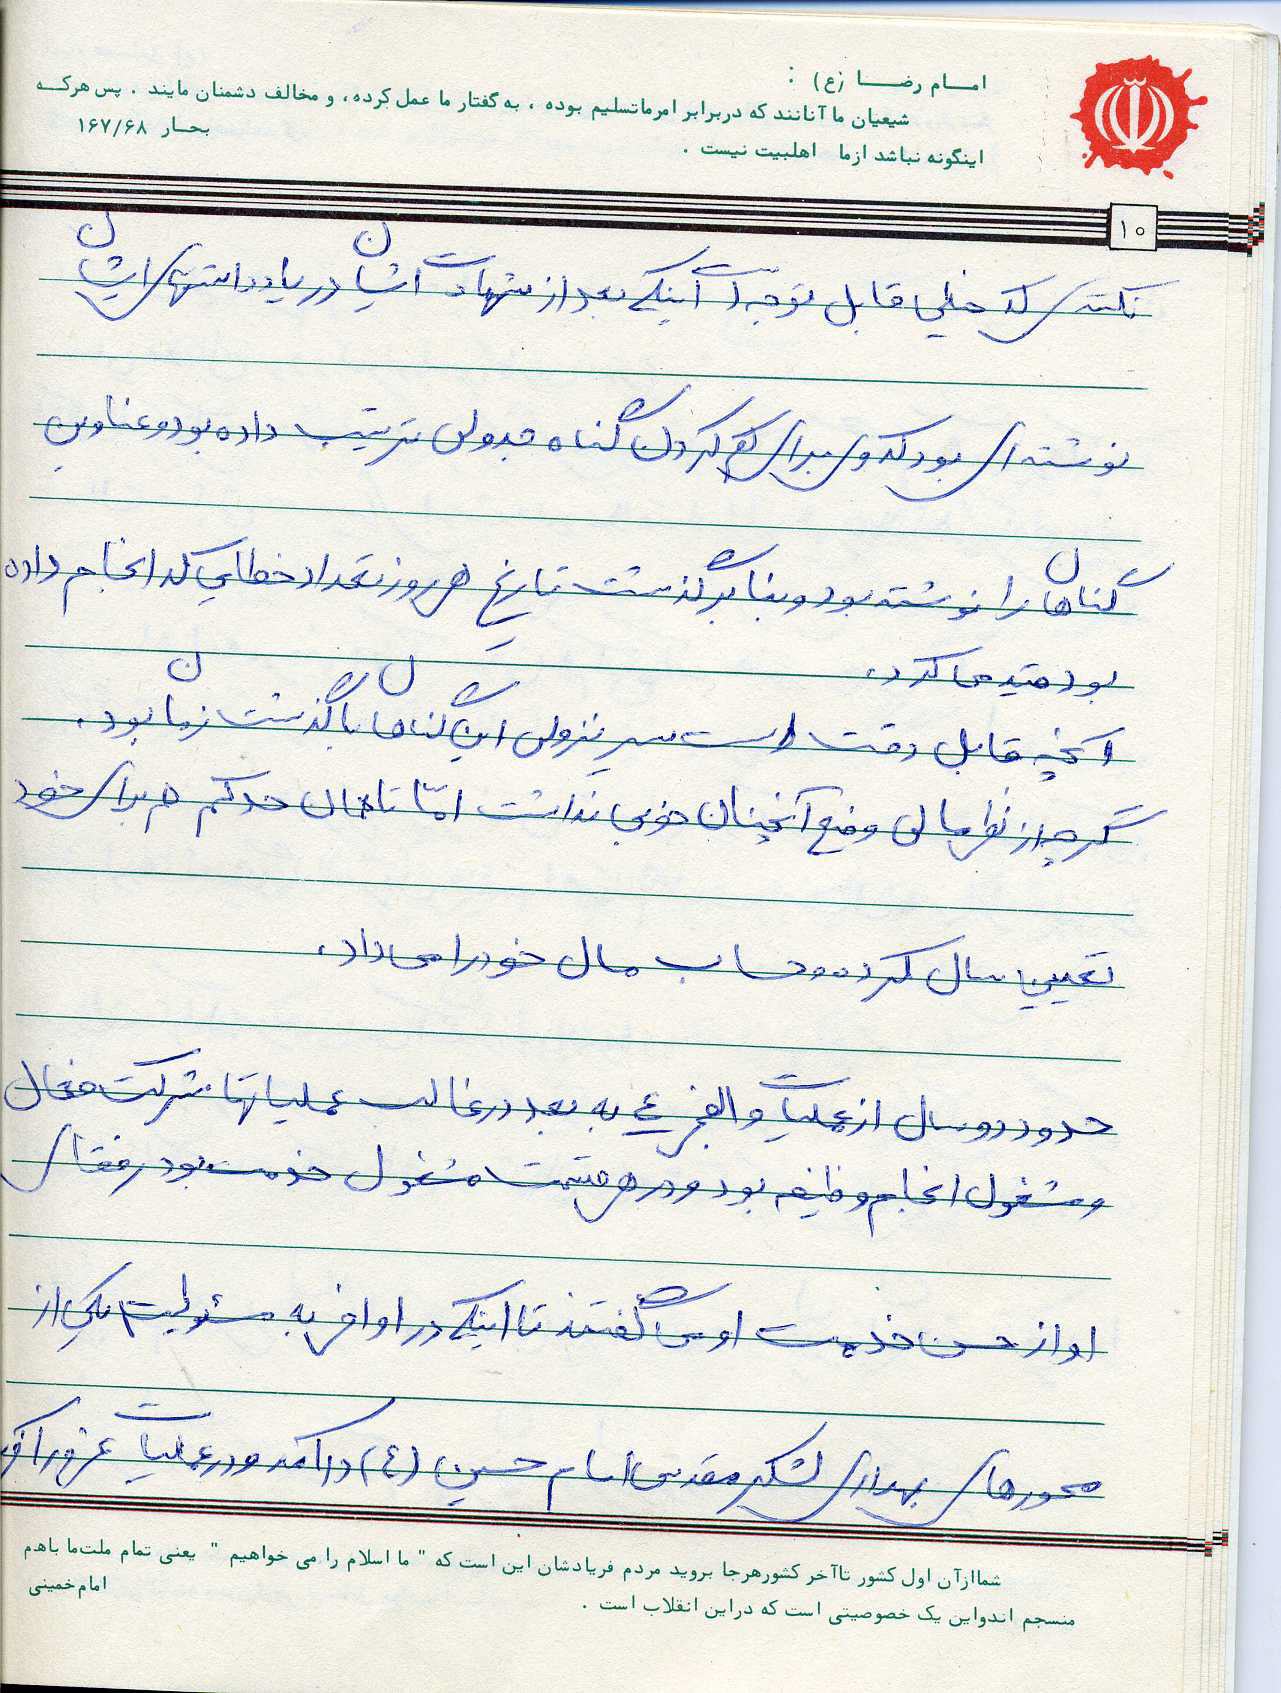 امـــام رضـــا (ع) :
شیعیان ما آنانند که دربرابر امرماتسلیم بوده ، به گفتار ما عمل کرده ، و مخالف دشمنان مایند . پس هرکــه
اینگونه نباشد ازما اهلبیت نیست .
بحــار ۱۶۷/۶۸
۱۰
نکته‌ی که خیلی قابل توجه است اینکه بعد از شهادت ایشان در یادداشتهای ایشان
نوشته‌ای بود که وی برای کم کردن گناه جدولی ترتیب داده بود و عناوین
گناهان را نوشته بود و بنا بر گذشت تاریخ هر روز تعداد خطایی که انجام داده
بود قید می‌کرد.
آنچه قابل دقت است سیر نزولی این گناهان با گذشت زمان بود.
گرچه از نظر مالی وضع آنچنان خوبی نداشت امّا تا همان حد کم هم برای خود
تعیین سال کرده و حساب مال خود را می‌داد.
حدود دو سال از عملیات والفجر ٤ به بعد در غالب عملیاتها شرکت فعال
و مشغول انجام وظیفه بود و در هر قسمت مشغول خدمت بود رفقای
او از حسن خدمت او می گفتند تا اینکه در اواخر به مسئولیت یکی از
محورهای بهداری لشکر مقدس امام حسین (ع) درآمد و در عملیات غرورآفرین
شماازآن اول کشور تاآخر کشورهرجا بروید مردم فریادشان این است که " ما اسلام را می خواهیم " یعنی تمام ملت‌ما باهم
منسجم اندواین یک خصوصیتی است که دراین انقلاب است .
امام‌خمینی